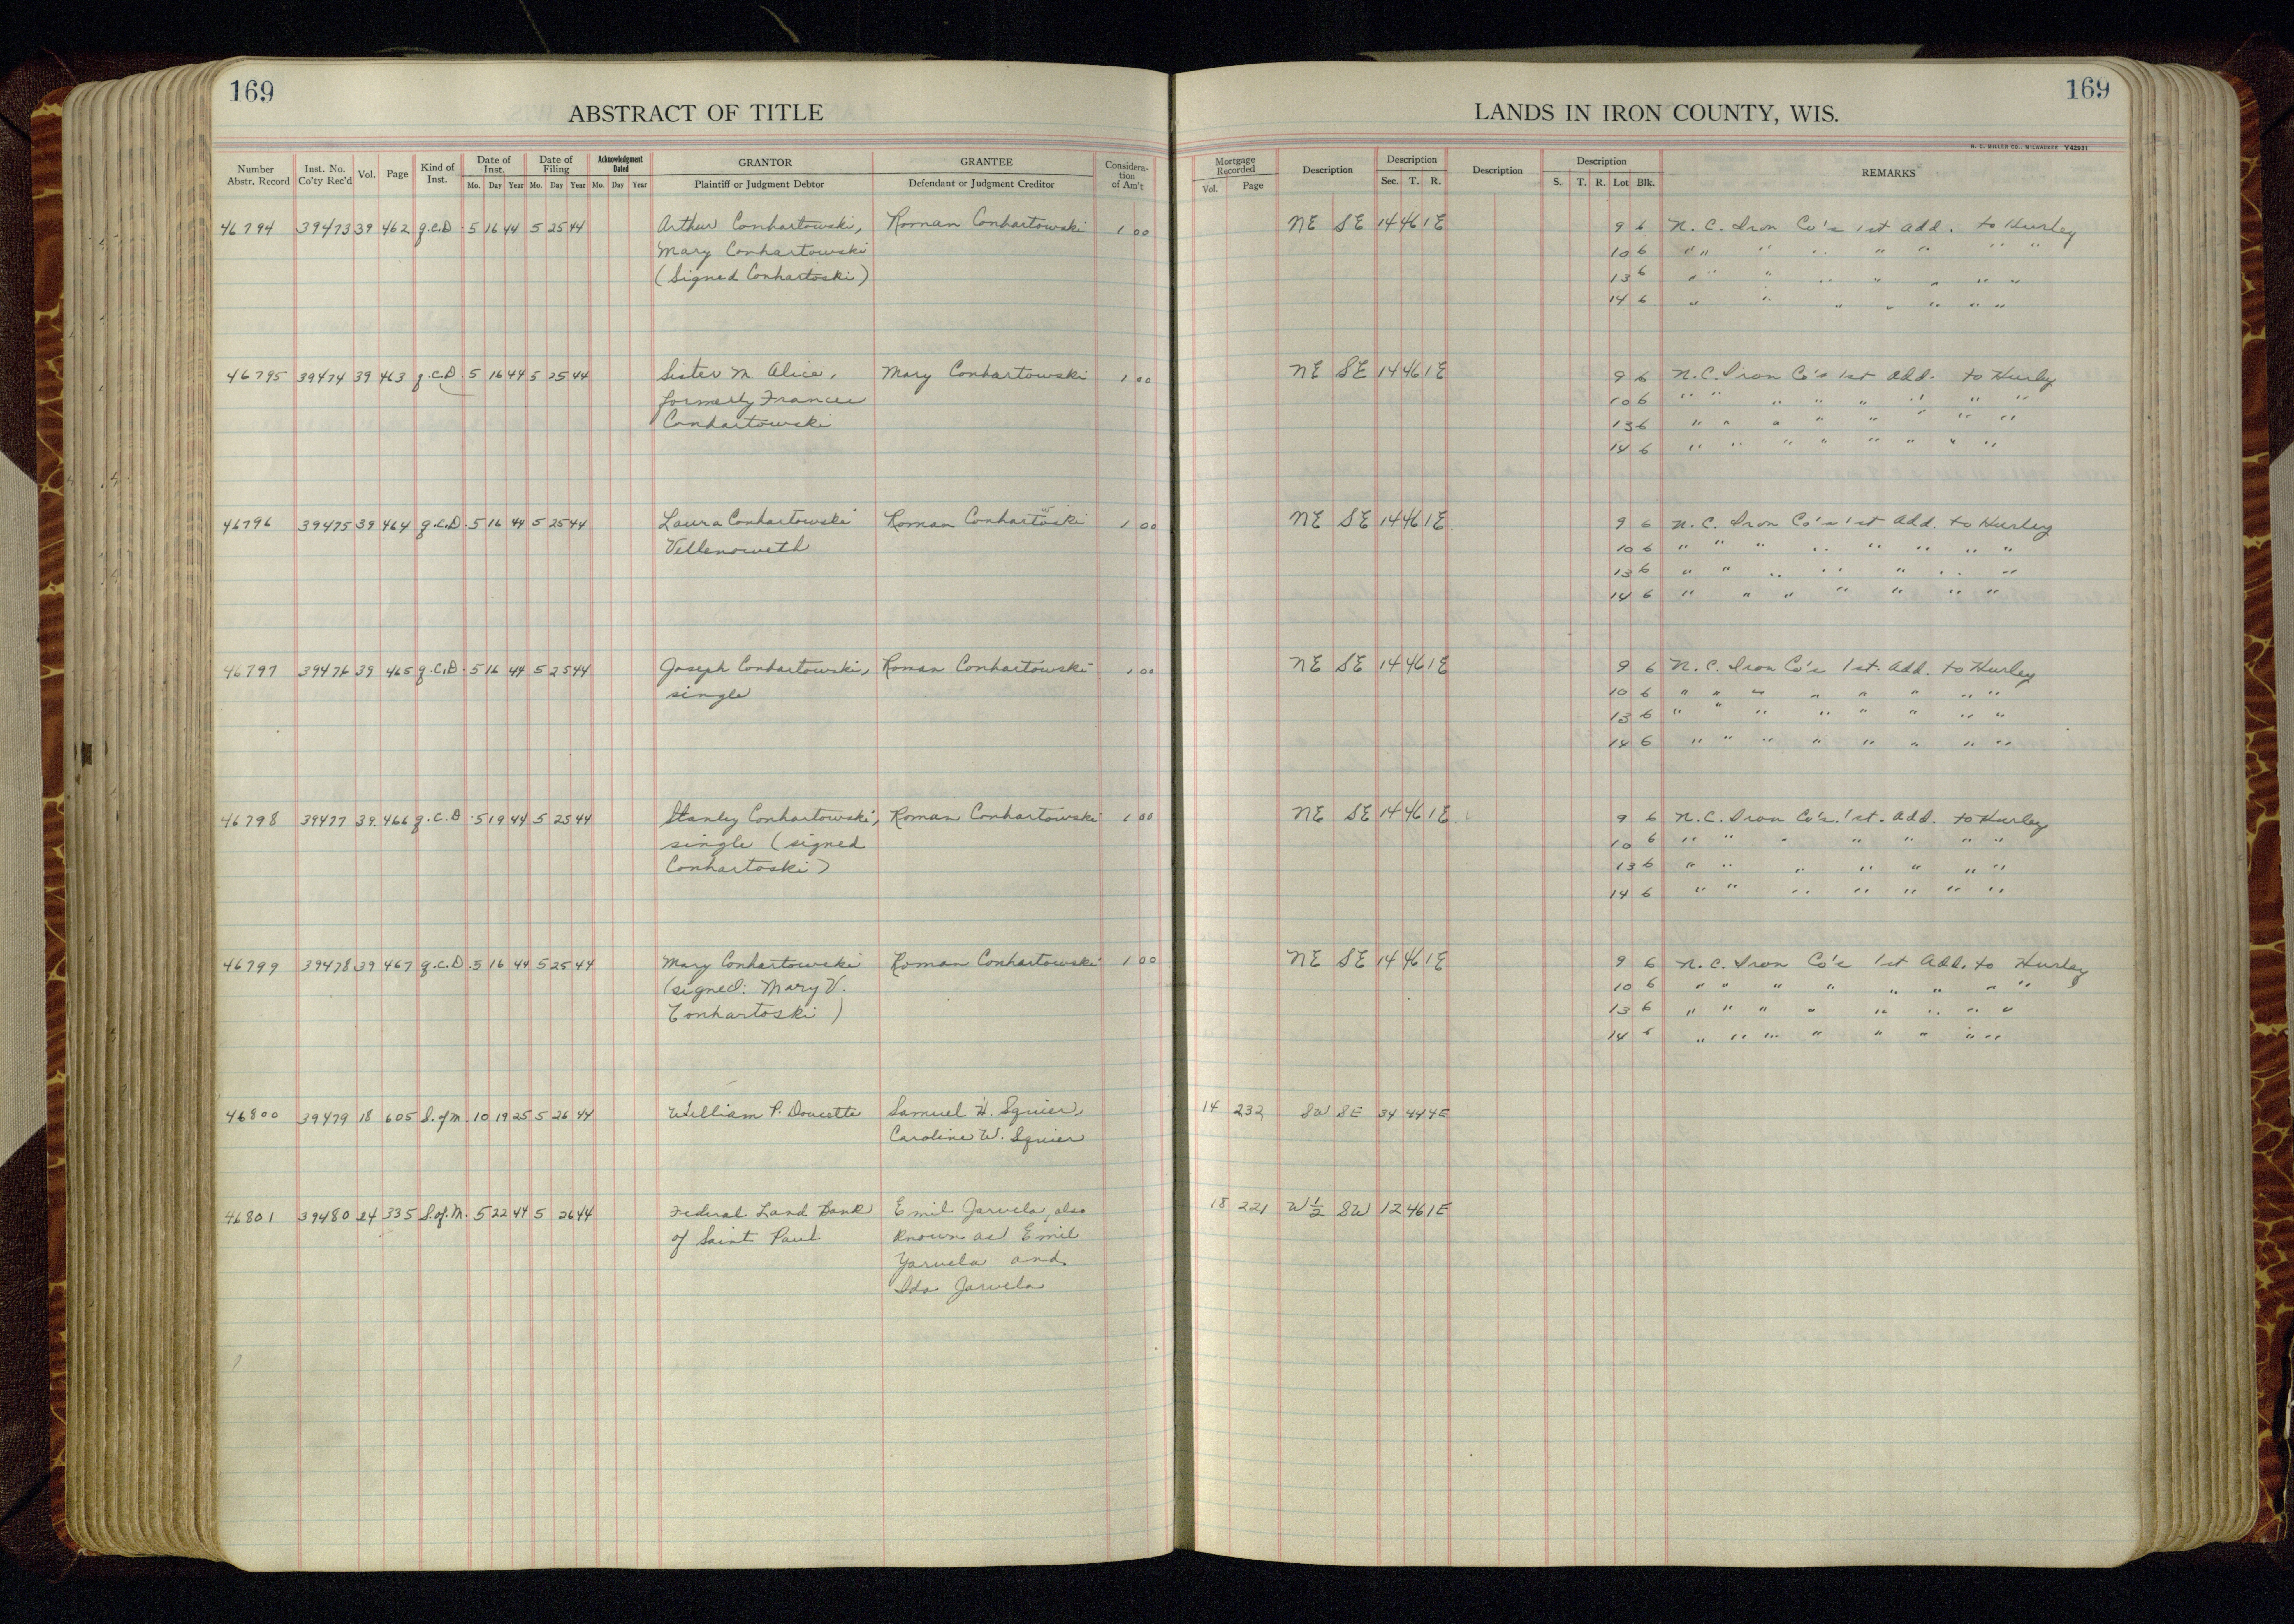 169
ABSTRACT OF TITLE
Number Abstr. Record | Inst. No. Co'ty Rec'd | Vol. | Page | Kind of Inst. | Date of Inst. Mo. Day Year | Date of Filing Mo. Day Year | Acknowledgment Dated Mo. Day Year | GRANTOR Plaintiff or Judgment Debtor | GRANTEE Defendant or Judgment Creditor | Consideration of Am't
46794 39473 39 462 q.c.D. 5 16 44 5 25 44 Arthur Conhartowski, Roman Conhartowski 1 00
Mary Conhartowski
(Signed Conhartoski)
46795 39474 39 463 q.c.D. 5 16 44 5 25 44 Sister M. Alice, Mary Conhartowski 1 00
formerly Frances
Conhartowski
46796 39475 39 464 q.c.D. 5 16 44 5 25 44 Laura Conhartowski Roman Conhartowski 1 00
Vellenoweth
46797 39476 39 465 q.c.D. 5 16 44 5 25 44 Joseph Conhartowski, Roman Conhartowski 1 00
single
46798 39477 39. 466 q.c.D. 5 19 44 5 25 44 Stanley Conhartowski, Roman Conhartowski 1 00
single (signed
Conhartoski)
46799 39478 39 467 q.c.D. 5 16 44 5 25 44 Mary Conhartowski Roman Conhartowski 1 00
(signed: Mary V.
Conhartoski)
46800 39479 18 605 S.of M. 10 19 25 5 26 44 William P. Doucette Samuel W. Squier,
Caroline W. Squier
46801 39480 24 335 S.of.M. 5 22 44 5 26 44 Federal Land Bank Emil Jarvela, also
of Saint Paul known as Emil
Yarvela and
Ida Jarvela
169
LANDS IN IRON COUNTY, WIS.
H. C. MILLER CO., MILWAUKEE Y42931
Mortgage Recorded Vol. Page | Description | Description Sec. T. R. | Description | Description S. T. R. Lot Blk. | REMARKS
NE SE 14 46 1E 9 6 N. C. Iron Co's 1st add. to Hurley
10 6 " " " " " " " "
13 6 " " " " " " " "
14 6 " " " " " " "
NE SE 14 46 1E 9 6 N.C. Iron Co's 1st Add. to Hurley
10 6 " " " " " " " "
13 6 " " " " " " " "
14 6 " " " " " " " "
NE SE 14 46 1E. 9 6 N. C. Iron Co's 1st Add. to Hurley
10 6 " " " " " " " "
13 6 " " " " " " "
14 6 " " " " " " "
NE SE 14 46 1E 9 6 N. C. Iron Co's 1st. Add. to Hurley
10 6 " " " " " " " "
13 6 " " " " " " " "
14 6 " " " " " " " "
NE SE 14 46 1E. 9 6 N. C. Iron Co's. 1st. Add. to Hurley
10 6 " " " " " " "
13 6 " " " " " " "
14 6 " " " " " " "
NE SE 14 46 1E 9 6 N. C. Iron Co's 1st Add. to Hurley
10 6 " " " " " " " "
13 6 " " " " " " " "
14 6 " " " " " " " "
14 232 SW SE 34 44 4E
18 221 W 1/2 SW 12 46 1E